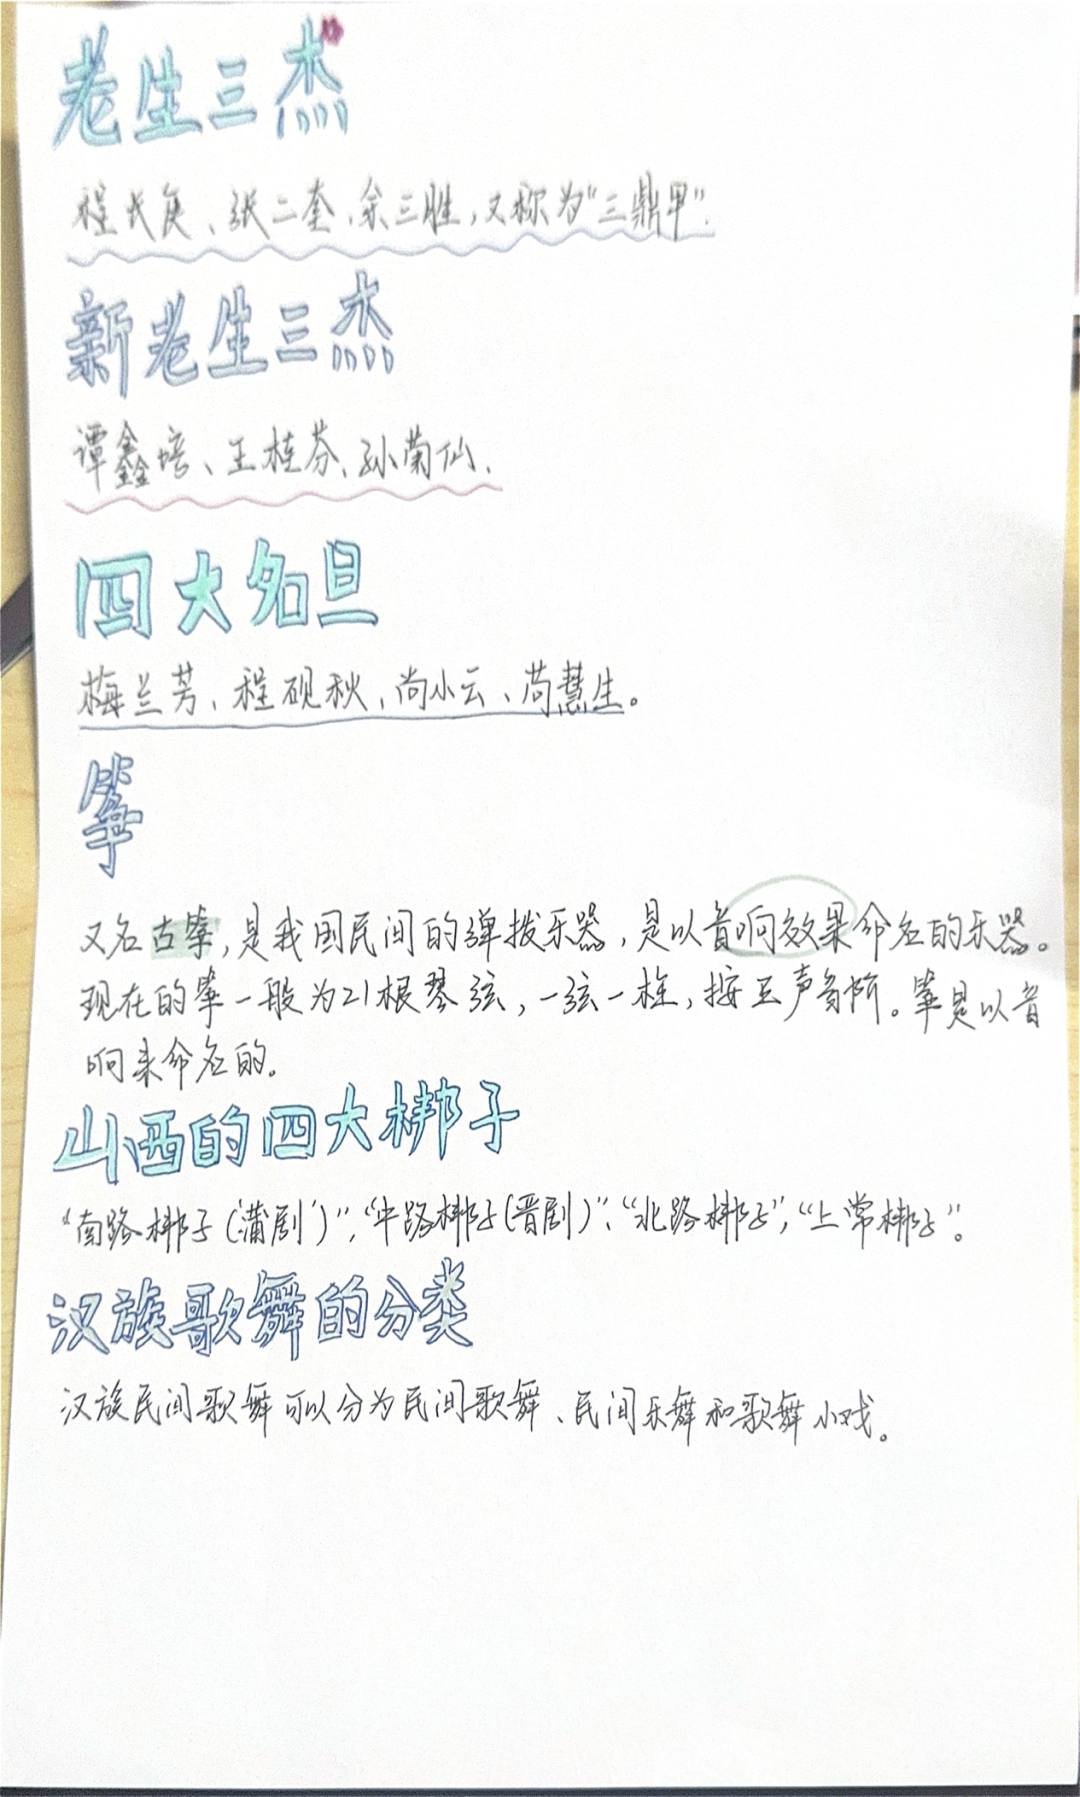 老生三杰
程长庚、张二奎、余三胜,又称为"三鼎甲".
新老生三杰
谭鑫培、王桂芬、孙菊仙.
四大名旦
梅兰芳、程砚秋、尚小云、荀慧生。
筝
又名古筝,是我国民间的弹拨乐器,是以音响效果命名的乐器。
现在的筝一般为21根琴弦,一弦一柱,按五声音阶。筝是以音
响来命名的.
山西的四大梆子
"南路梆子(蒲剧)"、"中路梆子(晋剧)"、"北路梆子"、"上党梆子"。
汉族歌舞的分类
汉族民间歌舞可以分为民间歌舞、民间乐舞和歌舞小戏。